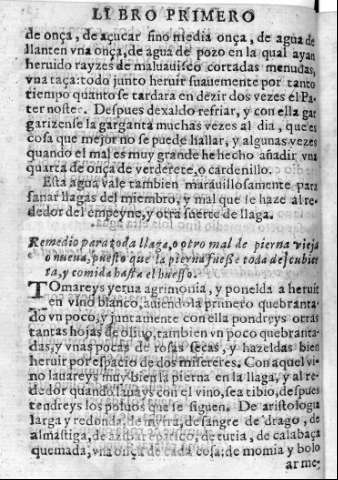 LIBRO PRIMERO
de onça, de açucar fino media onça, de agua de
llanten vna onça, de agua de pozo en la qual ayan
heruido rayzes de maluauisco cortadas menudas,
vna taça: todo junto heruir suauemente por tanto
tiempo quanto se tardara en dezir dos vezes el Pa
ter noster. Despues dexaldo refriar, y con ella gar
garizense la garganta muchas vezes al dia, que es
cosa que mejor no se puede hallar, y algunas vezes
quando el mal es muy grande he hecho añadir vna
quarta de onça de verderete, o cardenillo.
Esta agua vale tambien marauillosamente para
sanar llagas del miembro, y mal que se haze al re-
dedor del empeyne, y otra suerte de llaga.
Remedio para toda llaga, o otro mal de pierna vieja
o nueua, puesto que la pierna fuesse toda descubier
ta, y comida hasta el huesso.
TOmareys yerua agrimonia, y ponelda a heruir
en vino blanco, auiendola primero quebranta-
do vn poco, y juntamente con ella pondreys otras
tantas hojas de oliuo, tambien vn poco quebranta-
das, y vnas pocas de rosas secas, y hazeldas bien
heruir por espacio de dos misereres. Con aquel vi-
no lauareys muy bien la pierna en la llaga, y al re-
dedor quando lauays con el vino, sea tibio, despues
tendreys los poluos que se siguen. De aristologia
larga y redonda, de myrra, de sangre de drago, de
almastiga, de azibar epatico, de tutia, de calabaça
quemada, vna onça de cada cosa: de momia y bolo
ar me-